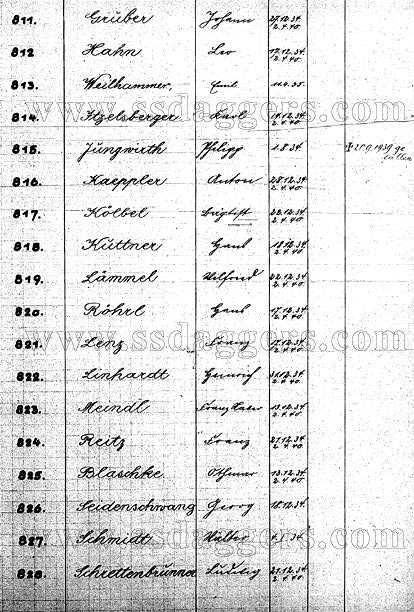 811. Grüber Johann 27.12.34. 2.4.40.
812 Hahn Leo 17.12.34. 2.4.40.
813. Weilhammer, Emil 11.4.35.
www.ssdaggers.com
814. Itzelsberger Karl 14.12.34. 2.4.40.
815. Jüngwirth Philipp 1.8.34. 21.9.1939 ge fallen
816. Kaeppler Anton 28.12.34. 2.4.40.
817. Kölbel August 22.12.34. 2.4.40.
www.ssdaggers.com
818. Küttner Hans 18.12.34. 2.4.40.
819. Lämmel 22.12.34. 2.4.40.
820. Röhrl Hans 17.12.34. 2.4.40.
821. Lenz Franz 17.12.34. 2.4.40.
www.ssdaggers.com
822. Linhardt Heinrich 31.12.34. 2.4.40.
823. Meindl Franz Xaver 13.12.34. 2.4.40.
824. Reitz Franz 27.12.34. 2.4.40.
825. Blaschke Othmar 13.12.34. 2.4.40.
826. Seidenschwang Georg 18.12.34.
827. Schmidt Walter 34.
www.ssdaggers.com
828. Schrettenbrünner Ludwig 27.12.34. 2.4.40.